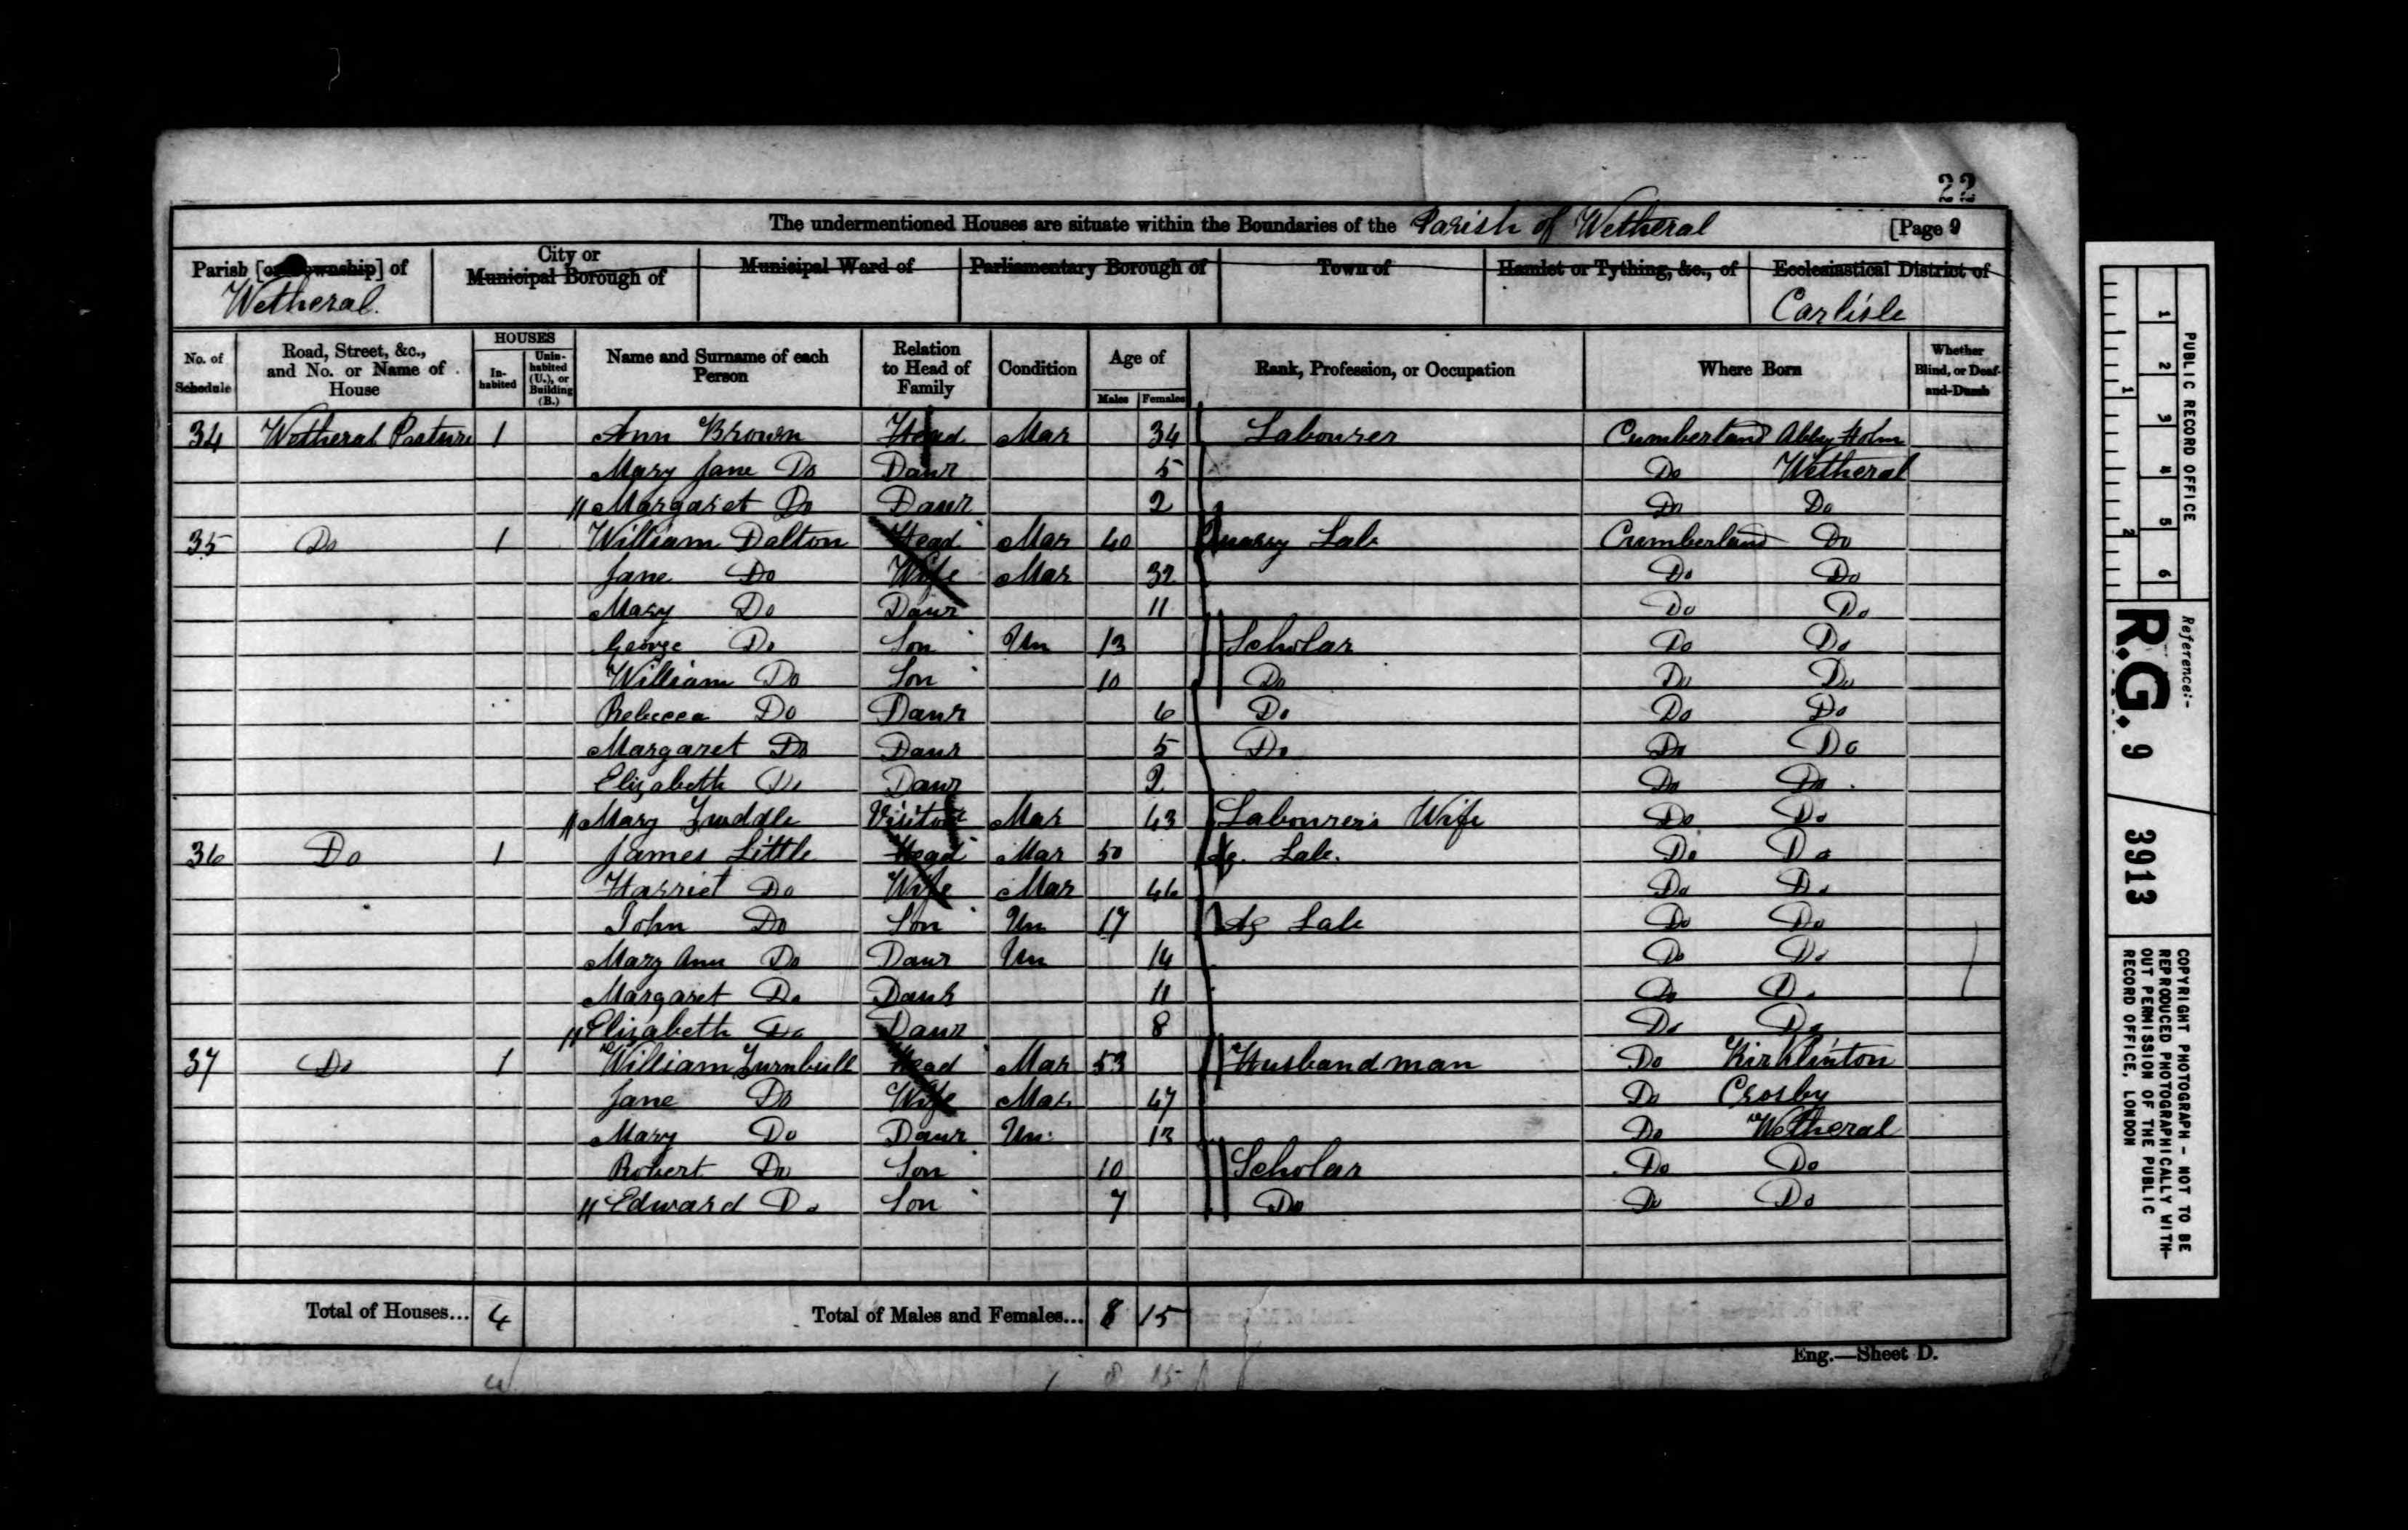 22
The undermentioned Houses are situate within the Boundaries of the Parish of Wetheral [Page 9
Parish [or Township] of City or Municipal Borough of Municipal Ward of Parliamentary Borough of Town of Hamlet or Tything, &c., of Ecclesiastical District of
Wetheral. Carlisle
No. of Schedule Road, Street, &c., and No. or Name of House HOUSES Inhabited Uninhabited (U.), or Building (B.) Name and Surname of each Person Relation to Head of Family Condition Age of Males Females Rank, Profession, or Occupation Where Born Whether Blind, or Deaf-and-Dumb
34 Wetheral Pasture 1 Ann Brown Head Mar 34 Labourer Cumberland Abby Holm
Mary Jane Do Daur 5 Do Wetheral
Margaret Do Daur 2 Do Do
35 Do 1 William Dalton Head Mar 40 Quarry Lab Cumberland Do
Jane Do Wife Mar 32 Do Do
Mary Do Daur 11 Do Do
George Do Son Un 13 Scholar Do Do
William Do Son 10 Do Do Do
Rebecca Do Daur 6 Do Do Do
Margaret Do Daur 5 Do Do Do
Elizabeth Do Daur 2 Do Do
Mary Visitor Mar 43 Labourer's Wife Do Do
36 Do 1 James Little Head Mar 50 Ag. Lab. Do Do
Harriet Do Wife Mar 46 Do Do
John Do Son Un 17 Ag Lab Do Do
Mary Ann Do Daur Un 14 Do Do
Margaret Do Daur 11 Do Do
Elizabeth Do Daur 8 Do Do
37 Do 1 William Turnbull Head Mar 53 Husbandman Do Kirklinton
Jane Do Wife Mar 47 Do Crosby
Mary Do Daur Un 13 Do Wetheral
Robert Do Son 10 Scholar Do Do
Edward Do Son 7 Do Do Do
Total of Houses... 4 Total of Males and Females... 8 15
Eng.—Sheet D.
4 8 15
PUBLIC RECORD OFFICE
1 2 3 4 5 6
1 2
Reference:-
R.G. 9 3913
COPYRIGHT PHOTOGRAPH - NOT TO BE
REPRODUCED PHOTOGRAPHICALLY WITH-
OUT PERMISSION OF THE PUBLIC
RECORD OFFICE, LONDON